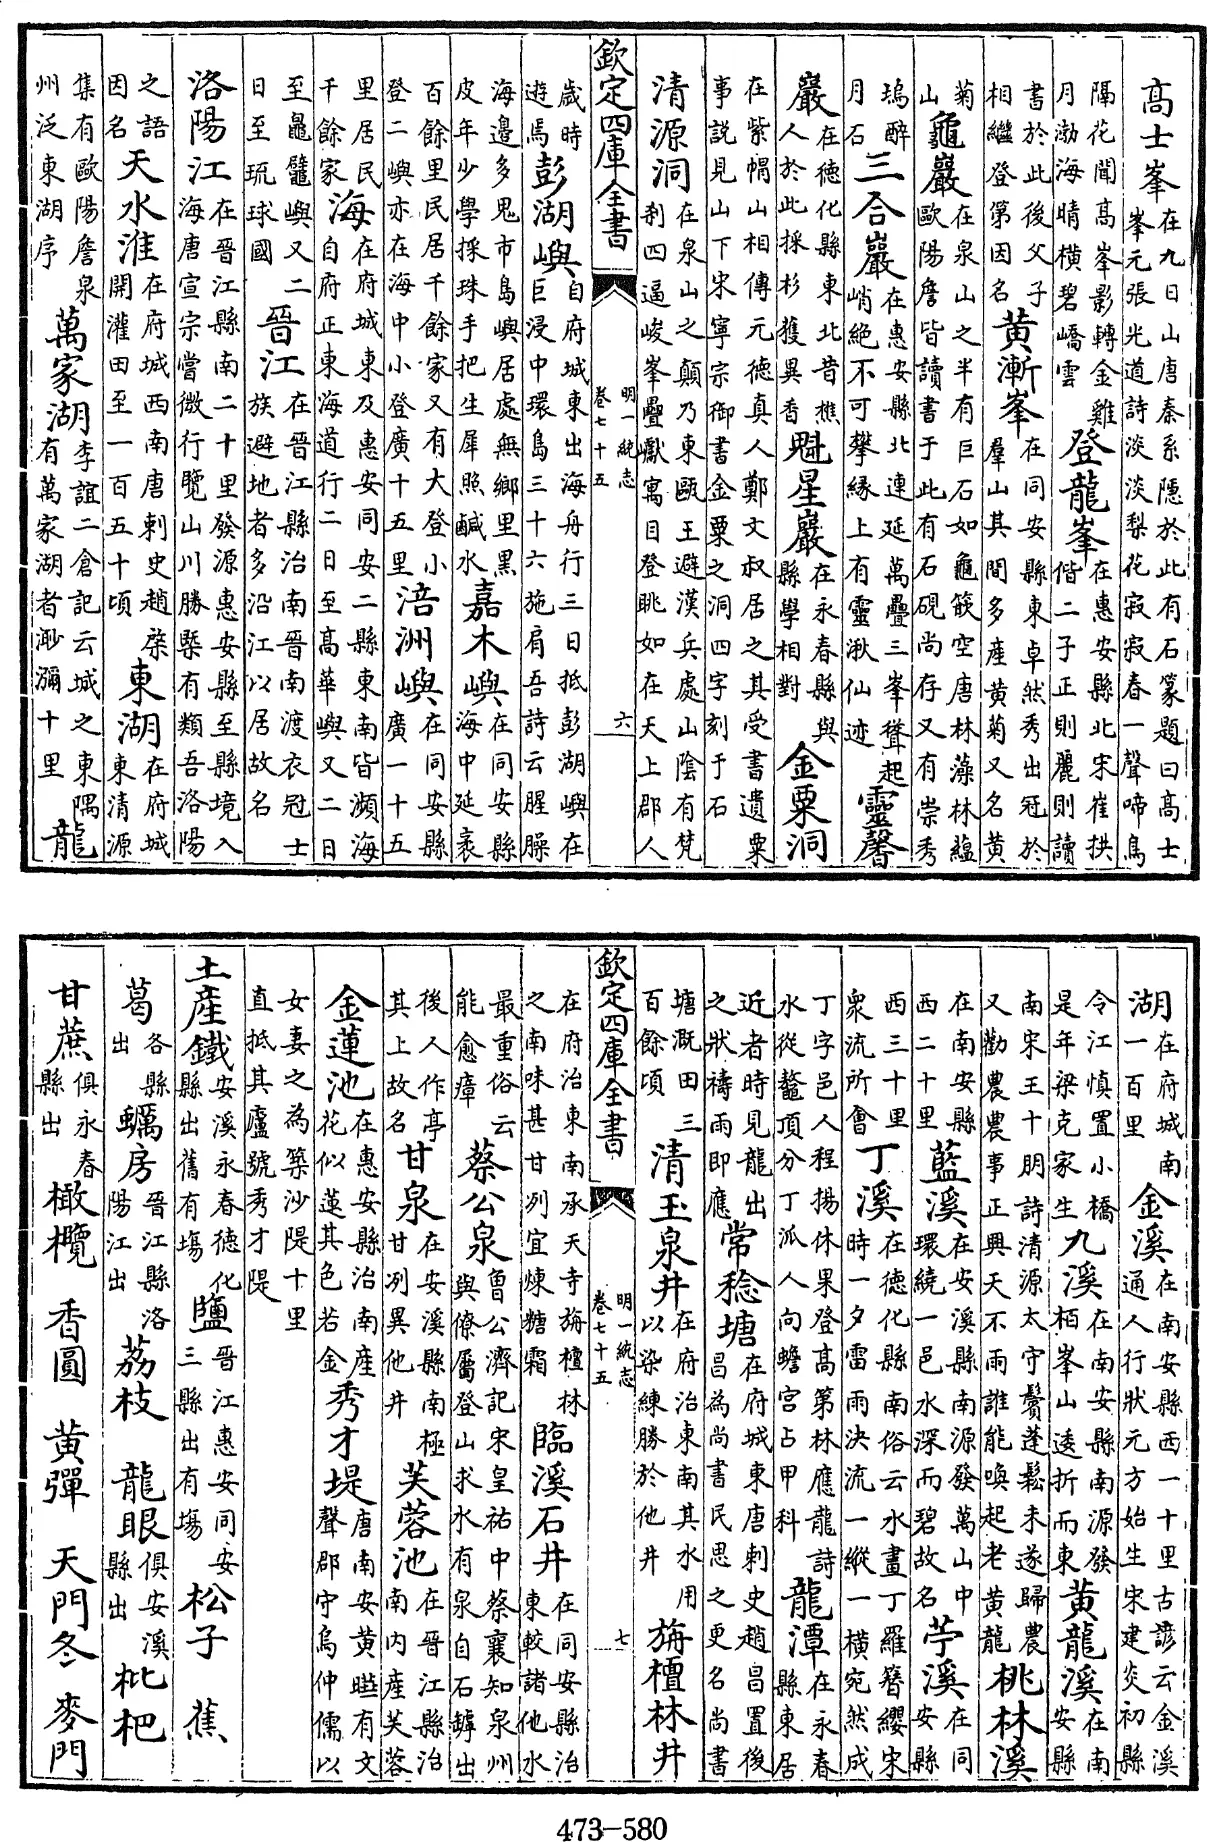 高士峯在九日山唐秦系隱於此有石篆題曰高士峯元張光道詩淡淡梨花寂寂春一聲啼鳥
隔花聞高峯影轉金雞月渤海晴橫碧嶠雲登龍峯在惠安縣北宋崔拱偕二子正則麗則讀
書於此後父子相繼登第因名黄漸峯在同安縣東卓然秀出冠於羣山其間多産黄菊又名黄
菊山龜巖在泉山之半有巨石如龜篏空唐林藻林藴歐陽詹皆讀書于此有石硯尚存又有崇秀
塢醉月石三合巖在惠安縣北連延萬疊三峯聳起峭絶不可攀縁上有靈湫仙迹靈馨
巖在德化縣東北昔樵人於此採杉獲異香魁星巖在永春縣與縣學相對金粟洞
在紫帽山相傳元德真人鄭文叔居之其受書遺粟事説見山下宋寧宗御書金粟之洞四字刻于石
清源洞在泉山之顛乃東甌王避漢兵處山陰有梵刹四逼峻峯疊巘寓目登眺如在天上郡人
欽定四庫全書 明一統志 卷七十五 六
歲時遊焉彭湖嶼自府城東出海舟行三日抵彭湖嶼在巨浸中環島三十六施肩吾詩云腥臊
海邊多鬼市島嶼居處無鄉里黑皮年少學採珠手把生犀照鹹水嘉木嶼在同安縣海中延袤
百餘里民居千餘家又有大登小登二嶼亦在海中小登廣十五里涪洲嶼在同安縣廣一十五
里居民千餘家海在府城東及惠安同安二縣東南皆瀕海自府正東海道行二日至高華嶼又二日
至鼊嶼又二日至琉球國晉江在晉江縣治南晉南渡衣冠士族避地者多沿江以居故名
洛陽江在晉江縣南二十里發源惠安縣至縣境入海唐宣宗嘗微行覽山川勝槩有類吾洛陽
之語因名天水淮在府城西南唐刺史趙棨開灌田至一百五十頃東湖在府城東清源
集有歐陽詹泉州泛東湖序萬家湖李誼二倉記云城之東隅有萬家湖者渺瀰十里龍
湖在府城南一百里金溪在南安縣西一十里古諺云金溪通人行狀元方始生宋建炎初縣
令江慎置小橋是年梁克家生九溪在南安縣南源發栢峯山逶折而東黄龍溪在南安縣
南宋王十朋詩清源太守鬢蓬鬆未遂歸農又勸農農事正興天不雨誰能喚起老黄龍桃林溪
在南安縣西二十里藍溪在安溪縣南源發萬山中環繞一邑水深而碧故名苧溪在同安縣
西三十里衆流所會丁溪在德化縣南俗云水畫丁羅簪纓宋時一夕雷雨決流一縱一横宛然成
丁字邑人程揚休果登高第林應龍詩水從鼇頂分丁派人向蟾宮占甲科龍潭在永春縣東居
近者時見龍出之狀禱雨即應常稔塘在府城東唐刺史趙昌置後昌為尚書民思之更名尚書
塘溉田三百餘頃清玉泉井在府治東南其水用以染練勝於他井旃檀林井
欽定四庫全書 明一統志 卷七十五 七
在府治東南承天寺旃檀林之南味甚甘冽宜煉糖霜臨溪石井在同安縣治東較諸他水
最重俗云能愈瘴蔡公泉曾公濟記宋皇祐中蔡襄知泉州與僚屬登山求水有泉自石罅出
後人作亭其上故名甘泉在安溪縣南極甘冽異他井芙蓉池在晉江縣治南内産芙蓉
金蓮池在惠安縣治南産花似蓮其色若金秀才堤唐南安黄曒有文聲郡守烏仲儒以
女妻之為築沙隄十里直抵其廬號秀才隄
土産鐵安溪永春德化縣出舊有塲鹽晉江惠安同安三縣出有塲松子 蕉
葛各縣出蠣房晉江縣洛陽江出荔枝 龍眼俱安溪縣出枇杷
甘蔗俱永春縣出橄欖 香圓 黄彈 天門冬 麥門
473-580